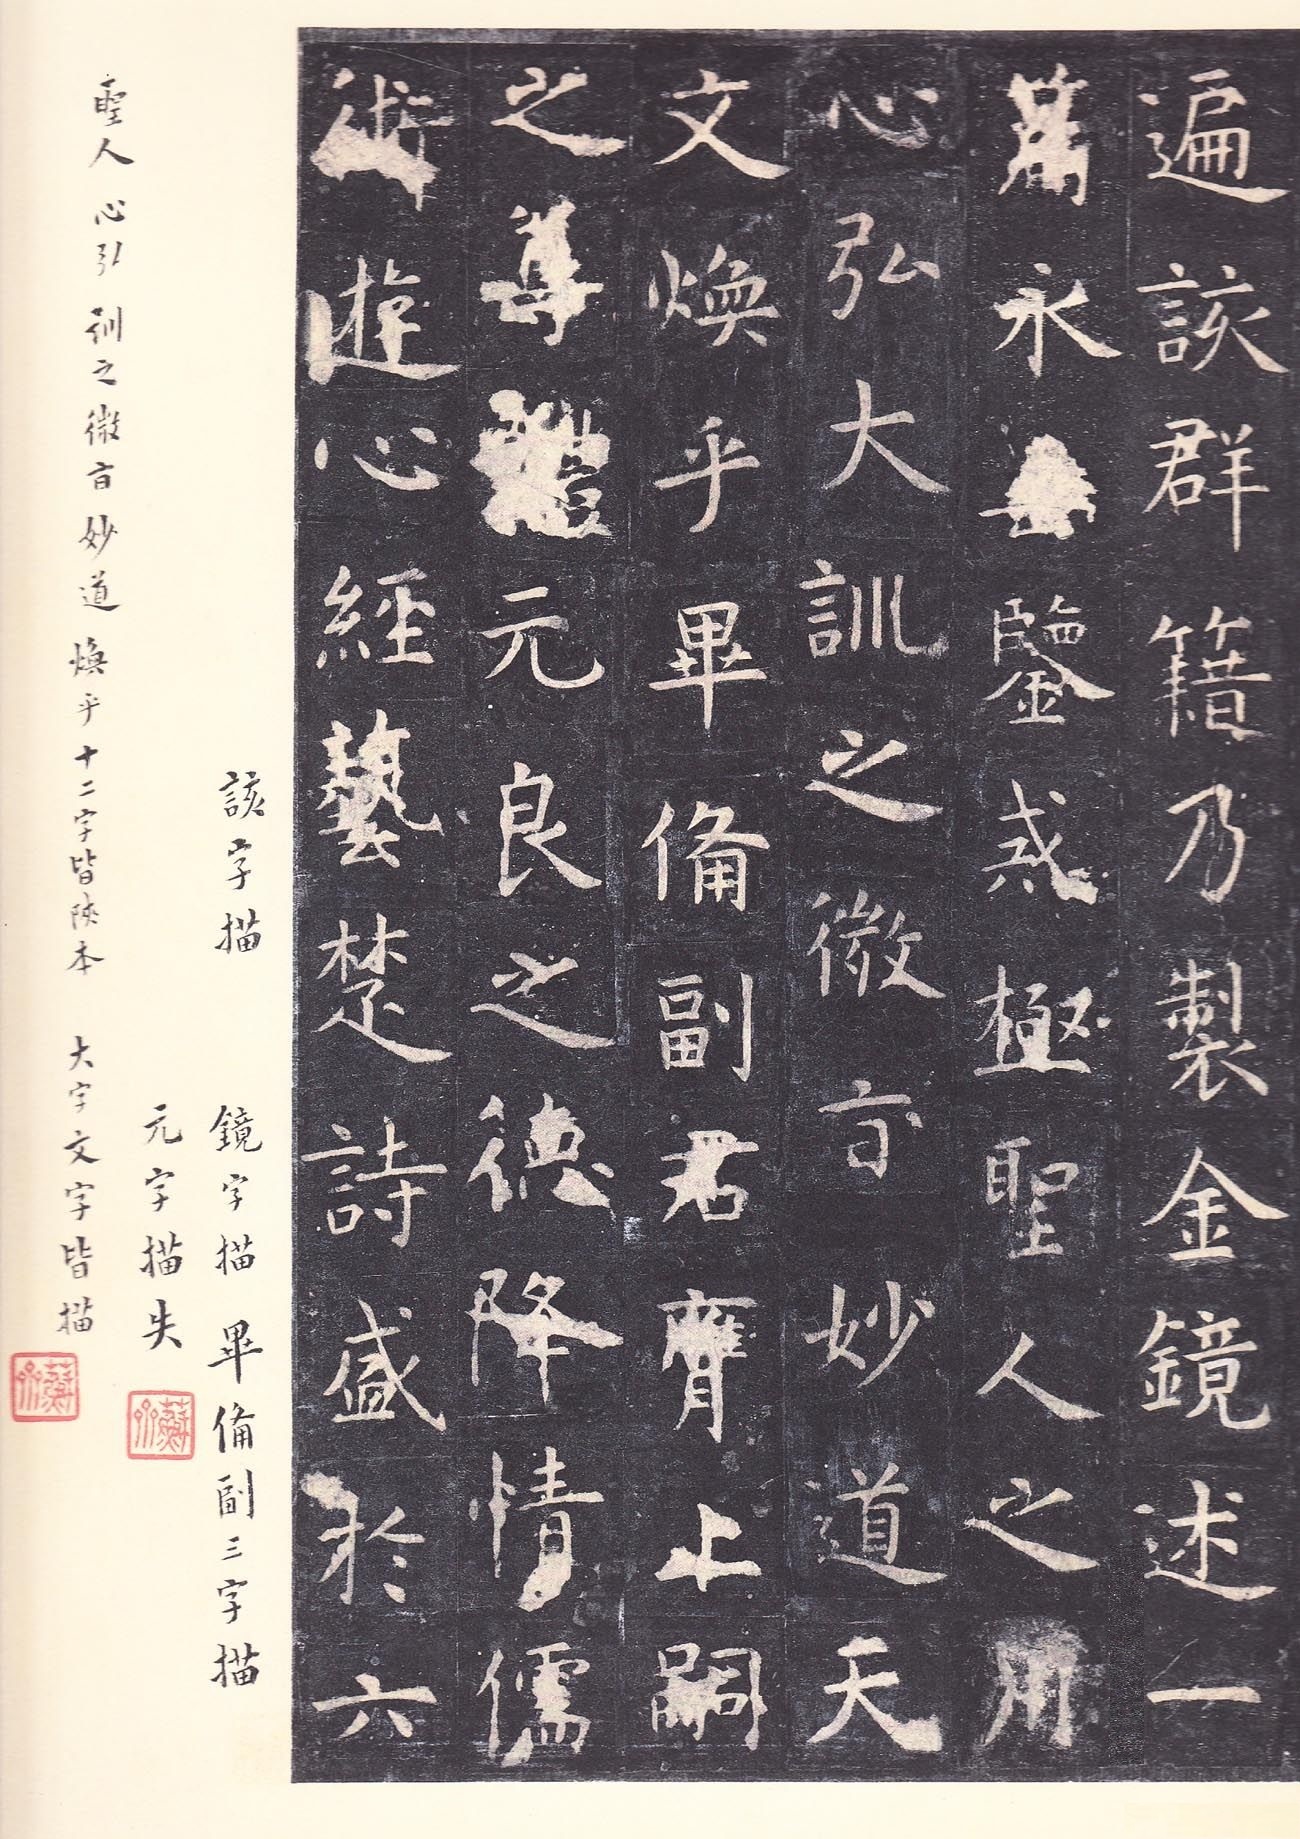 遍該群籍乃製金鏡述一
篇永垂鑒惑極聖人之用
心弘大訓之微言妙道天
文煥乎畢備副君膺上嗣
之尊體元良之德降情儒
術遊心經藝楚詩盛於六
該字描 鏡字描 畢備副三字描
元字描失
聖人 心弘 訓之微言妙道 煥乎十二字皆陝本 大字文字皆描